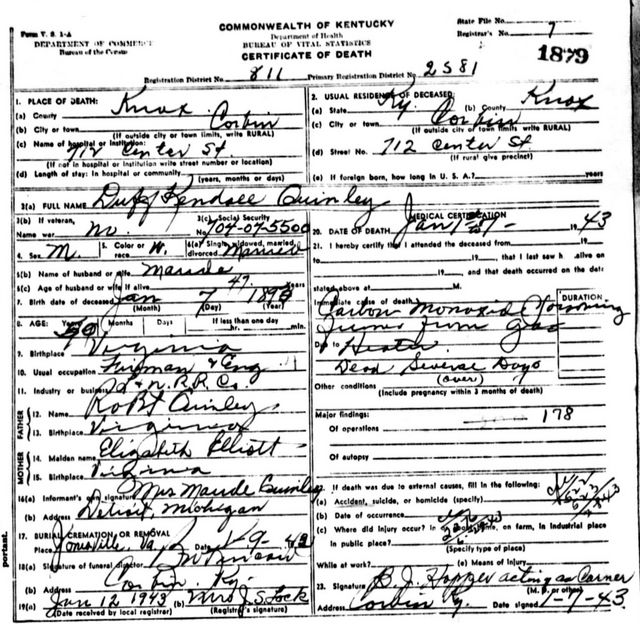 Form V. S. 1-A
COMMONWEALTH OF KENTUCKY
State File No.
DEPARTMENT OF COMMERCE
Department of Health
Registrar's No. 7
Bureau of the Census
BUREAU OF VITAL STATISTICS
CERTIFICATE OF DEATH
1879
Registration District No. 811 Primary Registration District No. 2581
1. PLACE OF DEATH:
(a) County Knox
(b) City or town Corbin
(If outside city or town limits, write RURAL)
(c) Name of hospital or institution:
712 Center St
(If not in hospital or institution write street number or location)
(d) Length of stay: In hospital or community
(years, months or days)
2. USUAL RESIDENCE OF DECEASED:
(a) State Ky. (b) County Knox
(c) City or town Corbin
(If outside city or town limits, write RURAL)
(d) Street No. 712 Center St
(If rural give precinct)
(e) If foreign born, how long in U. S. A.? years
3(a) FULL NAME Duff Kendall Quinley
3(b) If veteran,
Name war no
3(c) Social Security
No. 704-07-5500
4. Sex M. 5. Color or race W. 6(a) Single, widowed, married, divorced Married
6(b) Name of husband or wife Maude
6(c) Age of husband or wife if alive 47 Years
7. Birth date of deceased Jan 7
(Month) (Day) (Year)
8. AGE: Years Months Days If less than one day
hr. min.
9. Birthplace Virginia
10. Usual occupation Fireman & Eng
11. Industry or business L & N. R.R. Co.
FATHER
12. Name Robt Quinley
13. Birthplace Virginia
MOTHER
14. Maiden name Elizabeth Elliott
15. Birthplace Virginia
16(a) Informant's own signature Mrs Maude Quinley
(b) Address Detroit, Michigan
17. BURIAL, CREMATION OR REMOVAL
Place Jonesville, Va. Date 1-9-43
18(a) Signature of funeral director
(b) Address Corbin Ky.
19(a) Jan 12 1943 (b) Mrs J. S. Lock
(Date received by local registrar) (Registrar's signature)
MEDICAL CERTIFICATION
20. DATE OF DEATH Jan 1943
21. I hereby certify that I attended the deceased from 19
to 19 , that I last saw h alive on
19 , and that death occurred on the date
stated above at M.
DURATION
Immediate cause of death
Carbon Monoxide Poisoning
fumes from gas
Due to Heater
Dead Severse Days
(over)
Other conditions
(Include pregnancy within 3 months of death)
Major findings: 178
Of operations
Of autopsy
22. If death was due to external causes, fill in the following:
(a) Accident, suicide, or homicide (specify)
(b) Date of occurrence
(c) Where did injury occur? in home, on farm, in industrial place
in public place?
(Specify type of place)
While at work? (e) Means of Injury
23. Signature B. J. Hopper acting as Corner
(M. D. or other)
Address Corbin Ky. Date signed 1-7-43
portant.